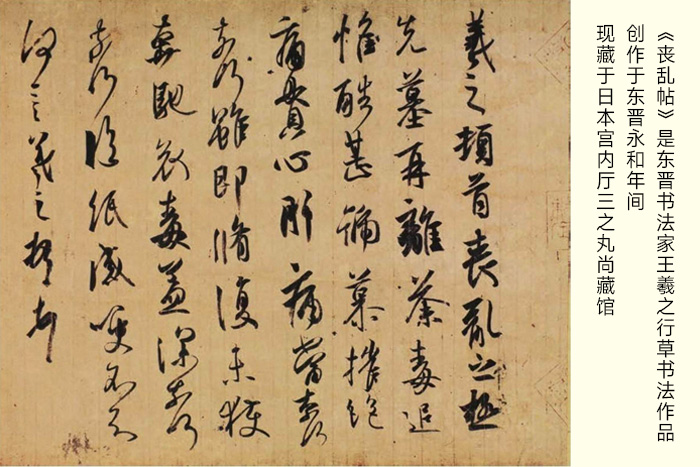 《丧乱帖》是东晋书法家王羲之行草书法作品
创作于东晋永和年间
现藏于日本宫内厅三之丸尚藏馆
羲之頓首喪亂之極
先墓再離荼毒追
惟酷甚號慕摧絕
痛貫心肝痛當奈何
奈何雖即脩復未獲
奔馳哀毒益深奈何
奈何臨紙感哽不知
何言羲之頓首